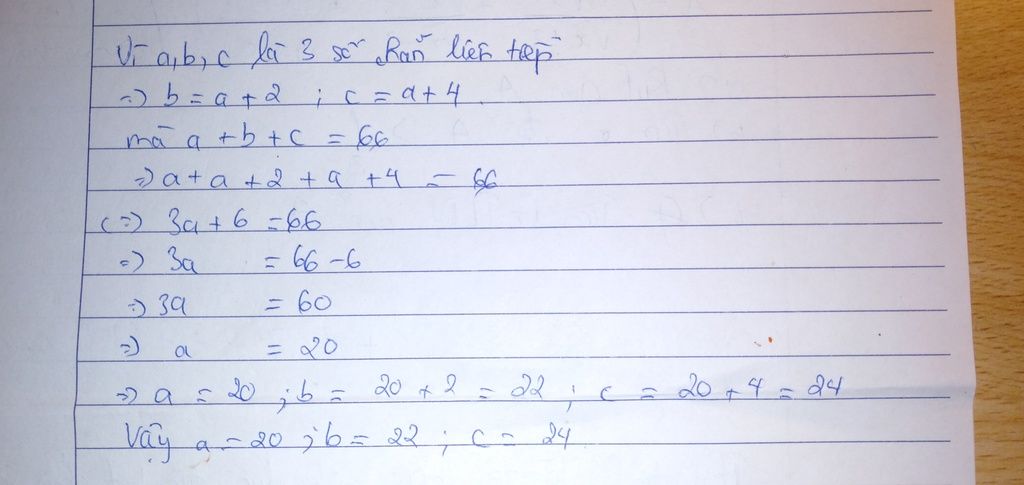 Vì a,b,c là 3 số chẵn liên tiếp
=> b = a + 2 ; c = a + 4
mà a + b + c = 66
=> a + a + 2 + a + 4 = 66
(=>) 3a + 6 = 66
=> 3a = 66 - 6
=> 3a = 60
=> a = 20
=> a = 20 ; b = 20 + 2 = 22 ; c = 20 + 4 = 24
Vậy a = 20 ; b = 22 ; c = 24